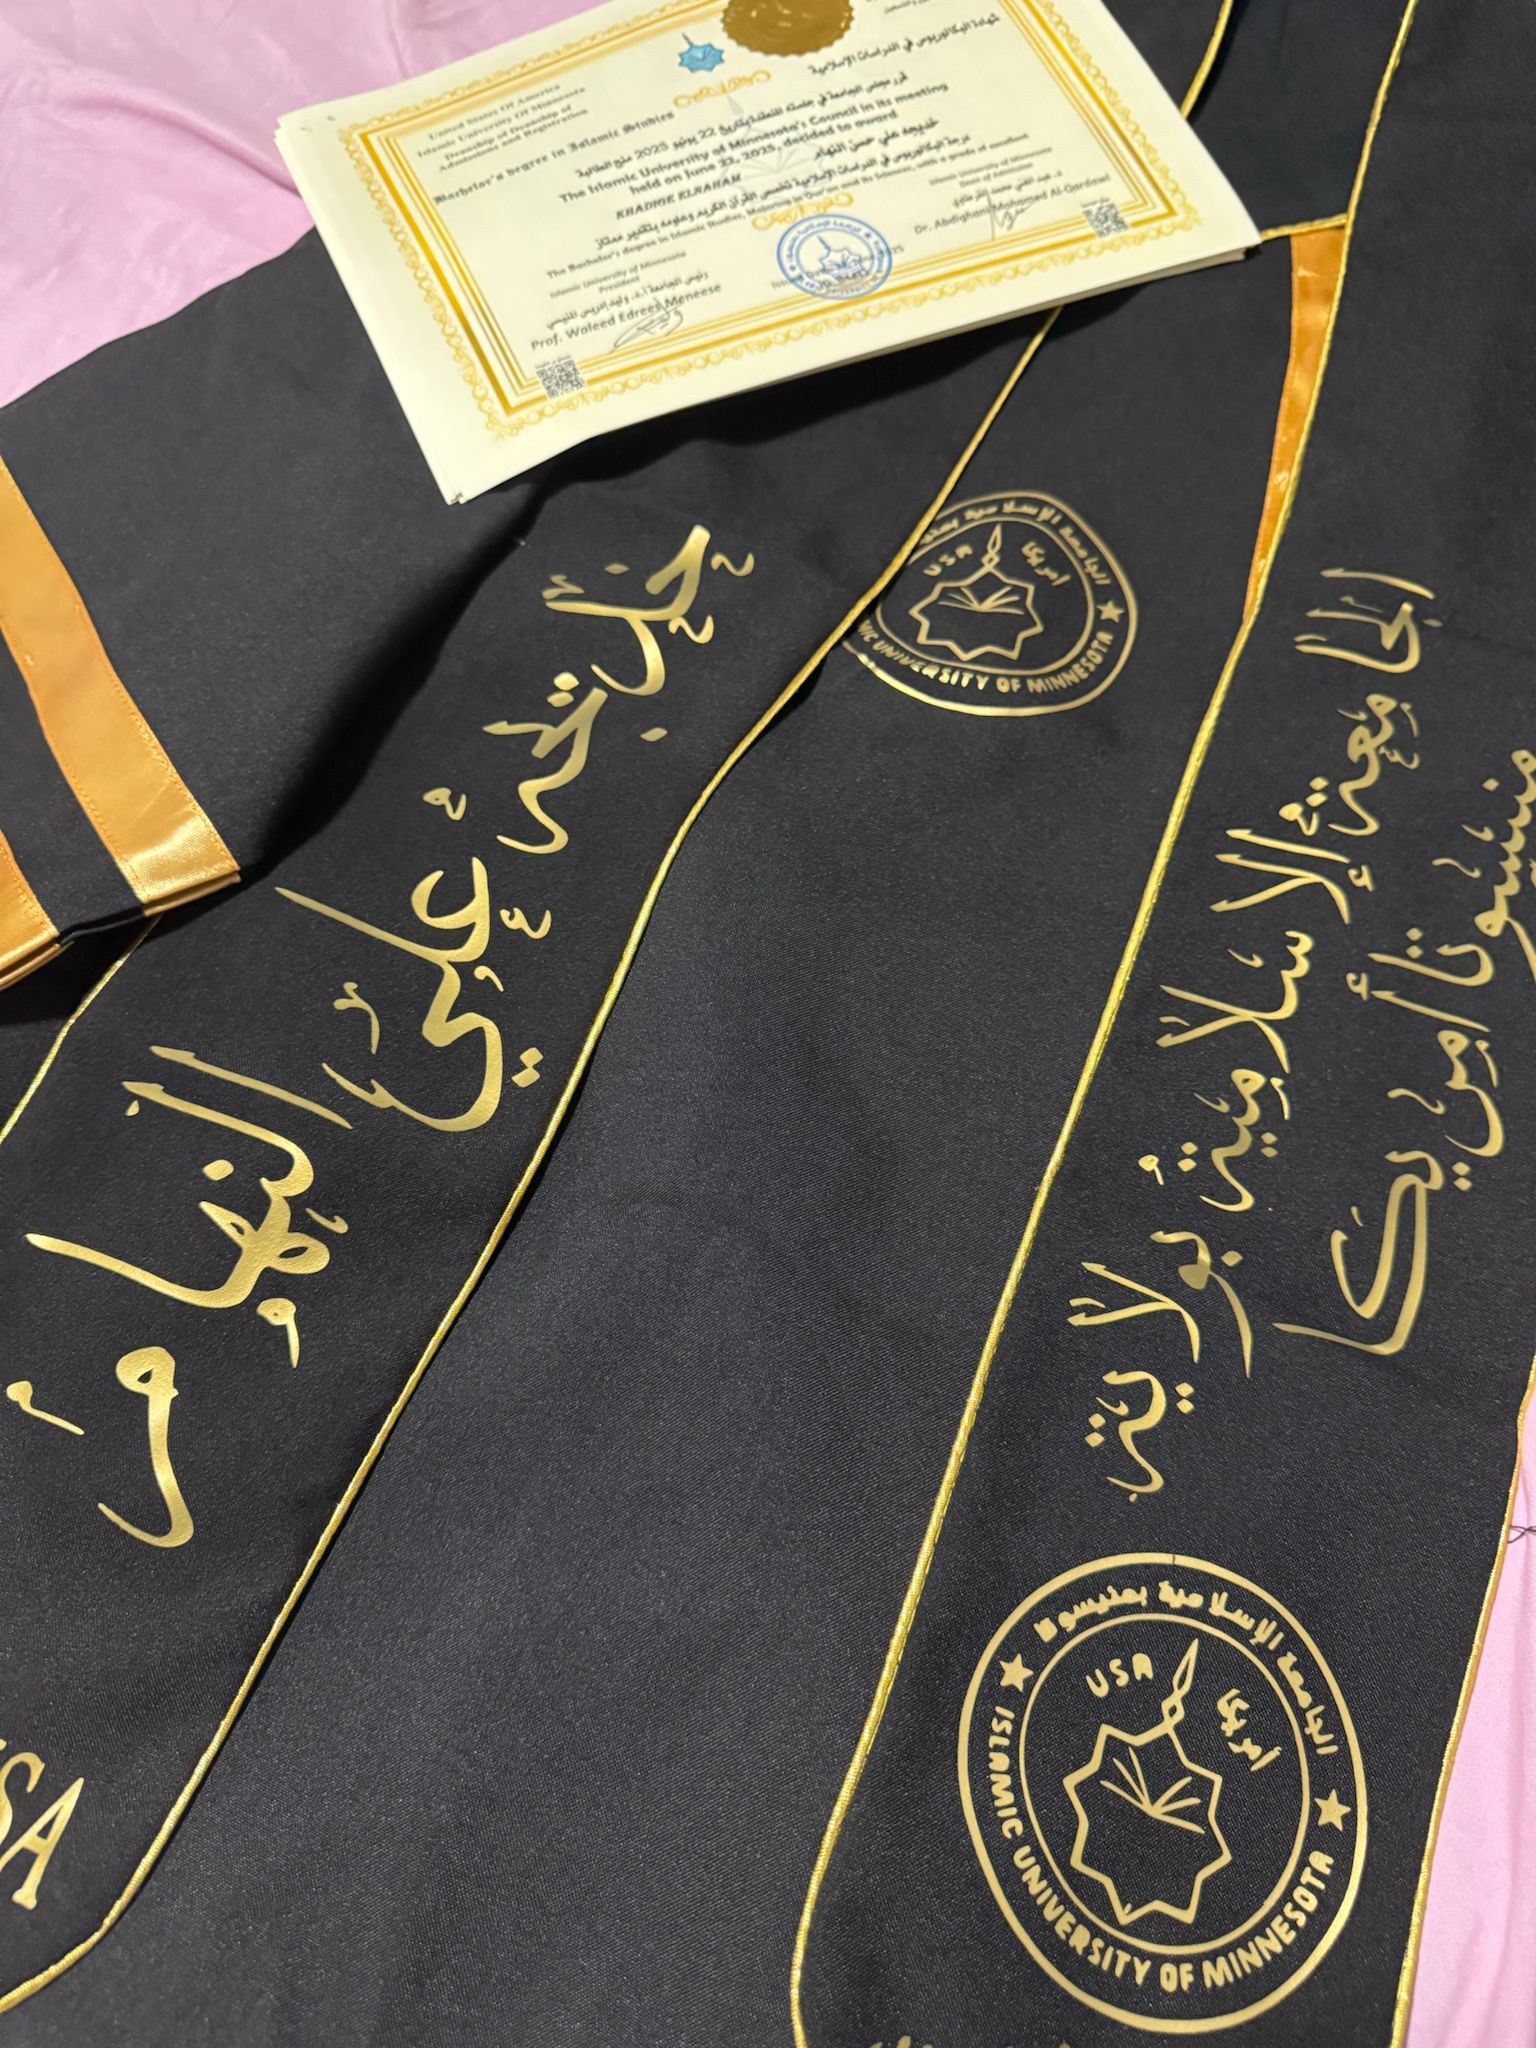 United States Of America
Islamic University Of Minnesota
Deanship of
Admissions and Registration
شهادة البكالوريوس في الدراسات الإسلامية
Bachelor's degree in Islamic Studies
قرر مجلس الجامعة في جلسته المنعقدة بتاريخ 22 يونيو 2025 منح الطالبة
The Islamic University of Minnesota's Council in its meeting
held on June 22, 2025, decided to award
خديجه علي حسن النهام
KHADIGE ELNAHAM
درجة البكالوريوس في الدراسات الإسلامية تخصص القرآن الكريم وعلومه بتقدير ممتاز
The Bachelor's degree in Islamic Studies, Majoring in Qur'an and its Sciences, with a grade of excellent
Islamic University of Minnesota
President
رئيس الجامعة أ.د. وليد إدريس المنيسي
Prof. Waleed Edrees Meneese
Islamic University of Minnesota
Dean of Admission
د. عبد الغني محمد القرضاوي
Dr. Abdighani Mohamed Al-Qardawi
خديجه علي النهام
SA
الجامعة الإسلامية بمنيس
USA
أمريكا
IC UNIVERSITY OF MINNESOTA
الجامعة الإسلامية بولاية
منيسوتا أمريكا
الجامعة الإسلامية بمنيسوتا
USA
أمريكا
ISLAMIC UNIVERSITY OF MINNESOTA